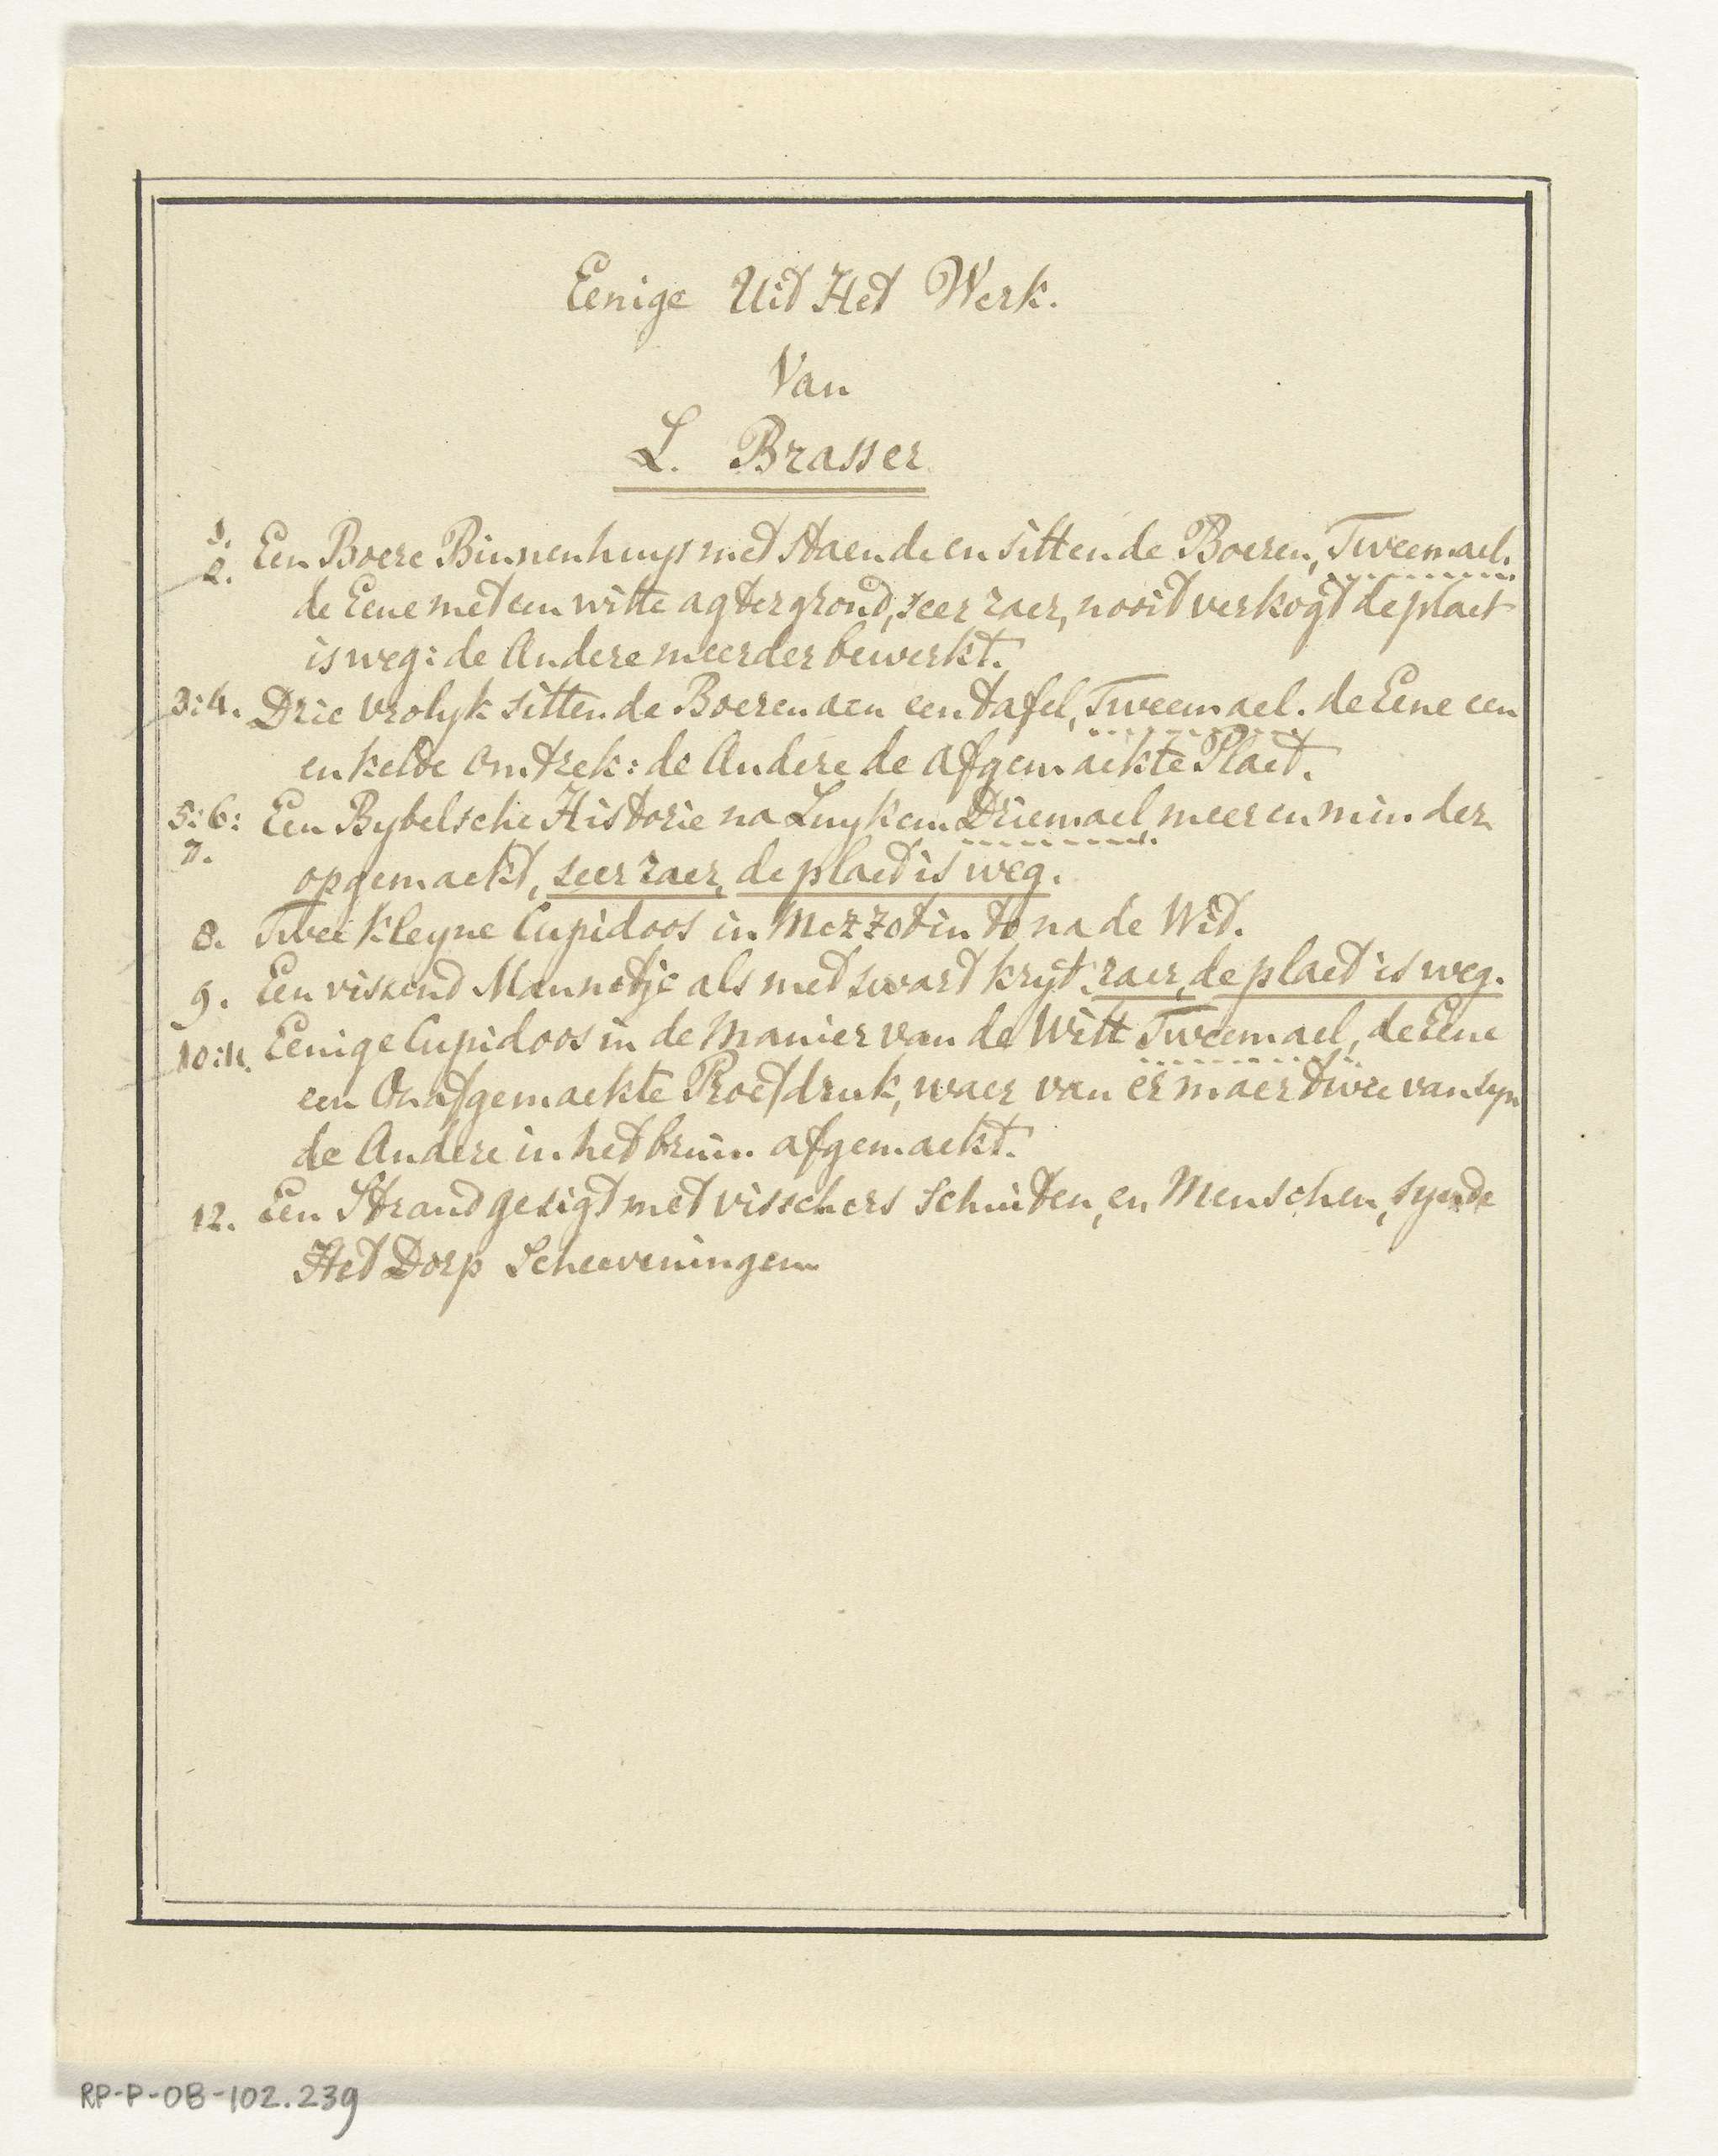 Eenige Uit Het Werk.
Van
L. Brasser
1.
2. Een Boere Binnenhuys met staende en sittende Boeren, Tweemael.
de Eene met een witte agtergrond, seer raer, nooit verkogt de plaet
is weg: de Andere meerder bewerkt.
3:4. Drie vrolyk sittende Boeren aen een tafel, Tweemael. de Eene een
enkelde omtrek: de Andere de afgemaekte Plaet.
5:6: Een Bybelsche Historie na Luyken. Driemael meer en minder
7.
opgemaekt, seer raer, de plaet is weg.
8. Twee kleyne Cupidoos in Mezzotinto na de Wit.
9. Een vissend Mannetje als met swart kryt, raer, de plaet is weg.
10:11. Eenige Cupidoos in de Manier van de Witt Tweemael, de Eene
een Onafgemaekte Proefdruk, waer van er maer twee van syn
de Andere in het bruin afgemaekt.
12. Een Strandgesigt met visschers Schuiten, en Menschen, synde
Het Dorp Scheeveningen
RP-P-OB-102.239